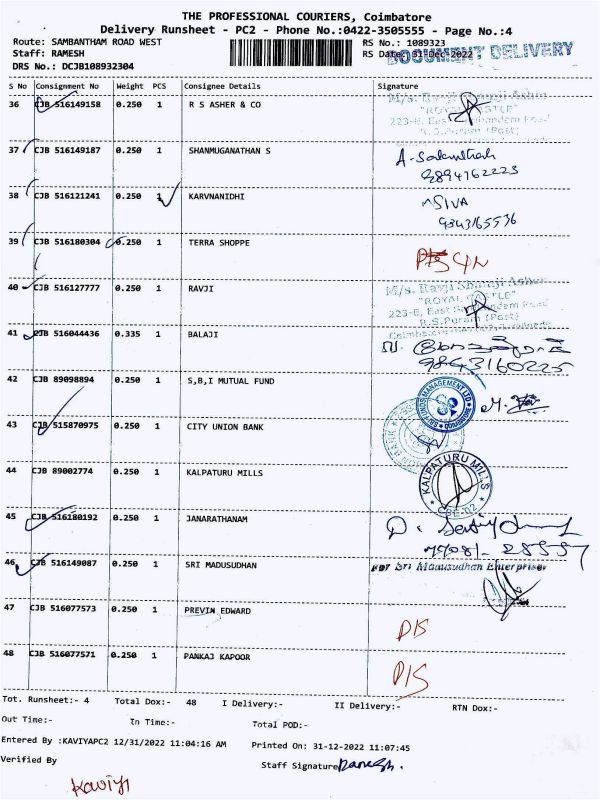 THE PROFESSIONAL COURIERS, Coimbatore
Delivery Runsheet - PC2 - Phone No.:0422-3505555 - Page No.:4
Route: SAMBANTHAM ROAD WEST RS No.: 1089323
Staff: RAMESH RS Date: 31-Dec-2022
DOCUMENT DELIVERY
DRS No.: DCJB108932304
S No Consignment No Weight PCS Consignee Details Signature
36 CJB 516149158 0.250 1 R S ASHER & CO
37 CJB 516149187 0.250 1 SHANMUGANATHAN S
9894762223
38 CJB 516121241 0.250 1 KARVNANIDHI SIVA
9843165536
39 CJB 516180304 0.250 1 TERRA SHOPPE
40 CJB 516127777 0.250 1 RAVJI
M/s. Ravji Asher
"ROYAL CASTLE"
R.S.Puram (Post)
41 CJB 516044436 0.335 1 BALAJI
9843160225
42 CJB 89098894 0.250 1 S,B,I MUTUAL FUND
43 CJB 515870975 0.250 1 CITY UNION BANK
44 CJB 89002774 0.250 1 KALPATURU MILLS
KALPATURU MILLS
45 CJB 516280192 0.250 1 JANARATHANAM
46 CJB 516149087 0.250 1 SRI MADUSUDHAN
For Sri Madusudhan Enterprises
47 CJB 516077573 0.250 1 PREVIN EDWARD
D/S
48 CJB 516077571 0.250 1 PANKAJ KAPOOR
D/S
Tot. Runsheet:- 4 Total Dox:- 48 I Delivery:- II Delivery:- RTN Dox:-
Out Time:- In Time:- Total POD:-
Entered By :KAVIYAPC2 12/31/2022 11:04:16 AM Printed On: 31-12-2022 11:07:45
Verified By Staff Signature Ramesh.
Kaviya